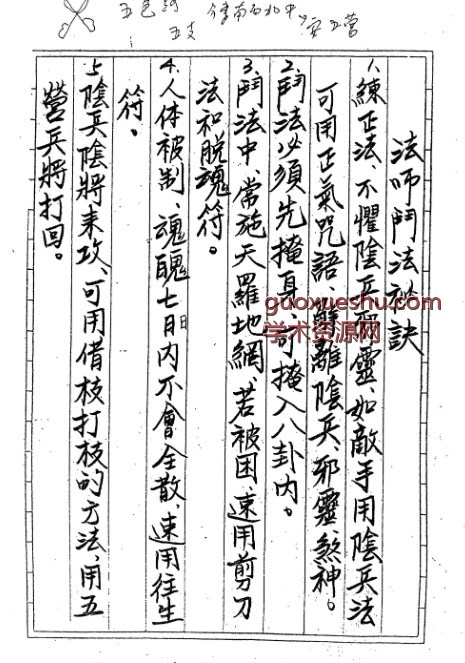 五色訶
五支
東南西北中
安五營
法師鬥法祕訣
1、練正法、不懼陰兵邪靈、如敵手用陰兵法
可用正氣咒語、解離陰兵、邪靈、煞神。
2、鬥法必須先掩身、可掩入八卦內。
3、鬥法中、常施天羅地網、若被困、速用剪刀
法和脫魂符。
4、人体被制、魂魄七日內不會全散、速用往生
符。
5、陰兵陰將來攻、可用借枝打枝的方法、用五
營兵將打回。
guoxueshu.com
学术资源网